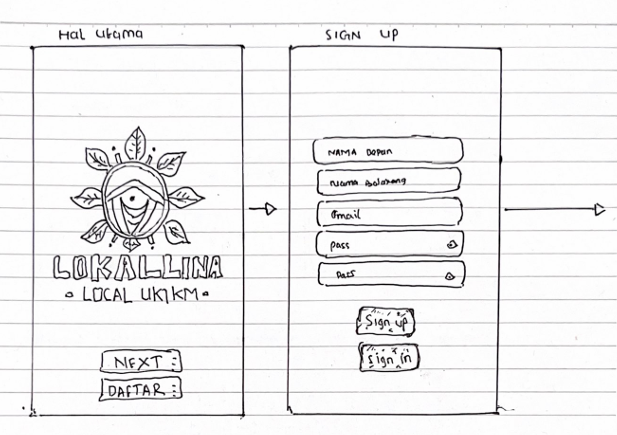 Hal utama
SIGN UP
LOKALLINA
LOCAL UK1KM
NEXT
DAFTAR
NAMA Depan
Nama Belakang
Email
pass
pass
Sign up
Sign in